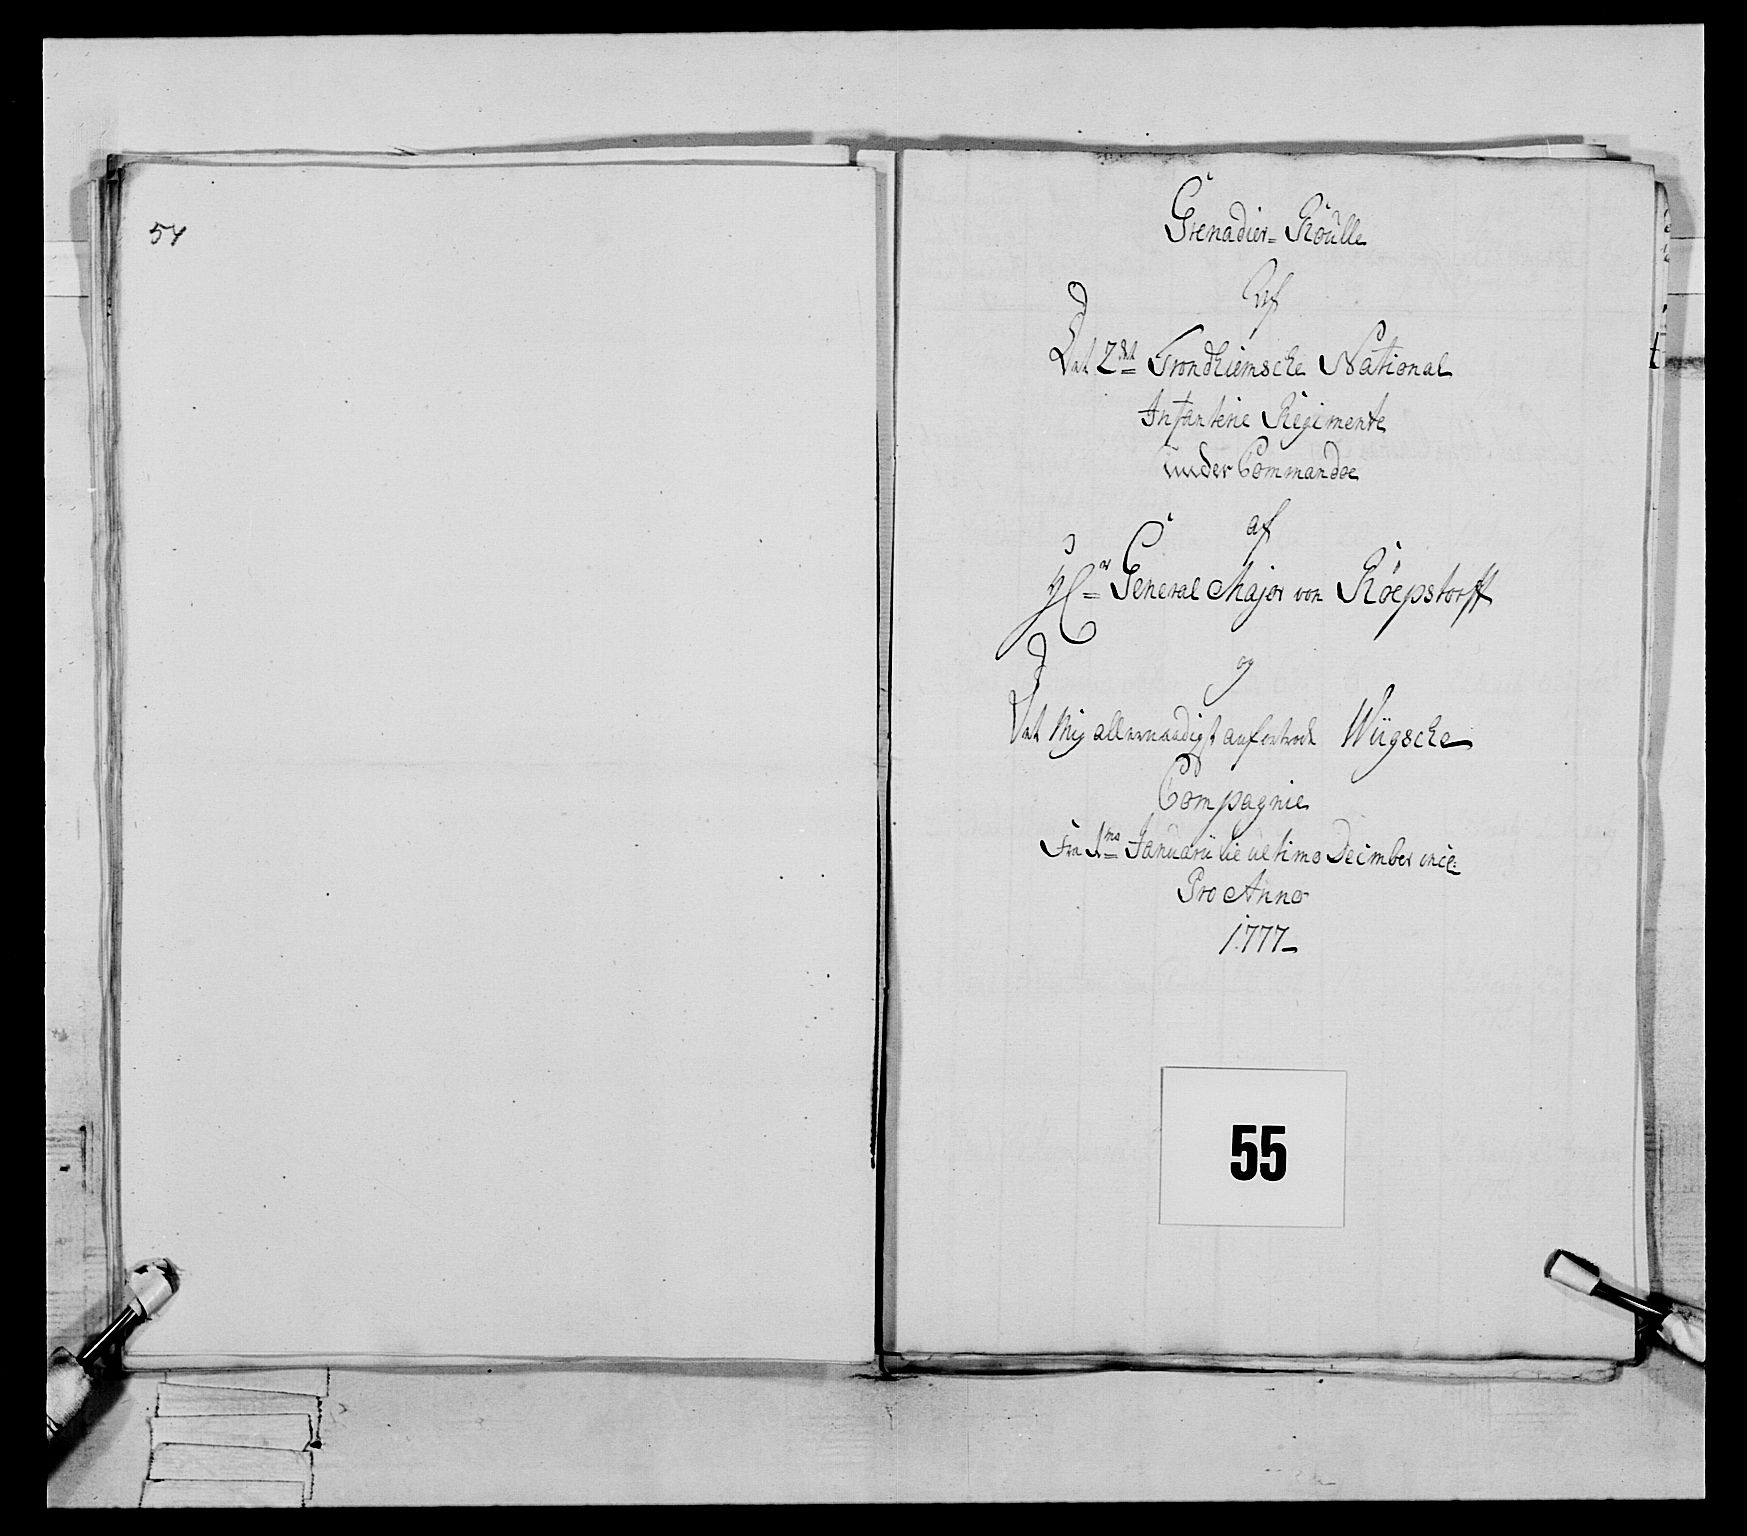 54
Grenadier= Roülle
Af
Det 2det Trondhiemsche National
Infanterie Regimente
under Commandoe
af
Hr General Major von Röepstorff
og
Det Mig allernaadigst anfortrode Wiigsche
Compagnie
Fra 1mo Januarii til ultimo December incl:
Pro Anno
1777
55